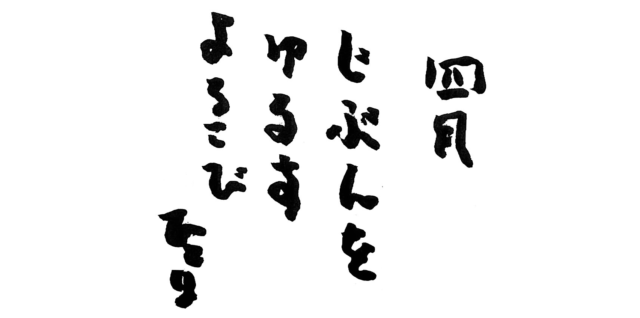 四月
じぶんを
ゆるす
よろこび